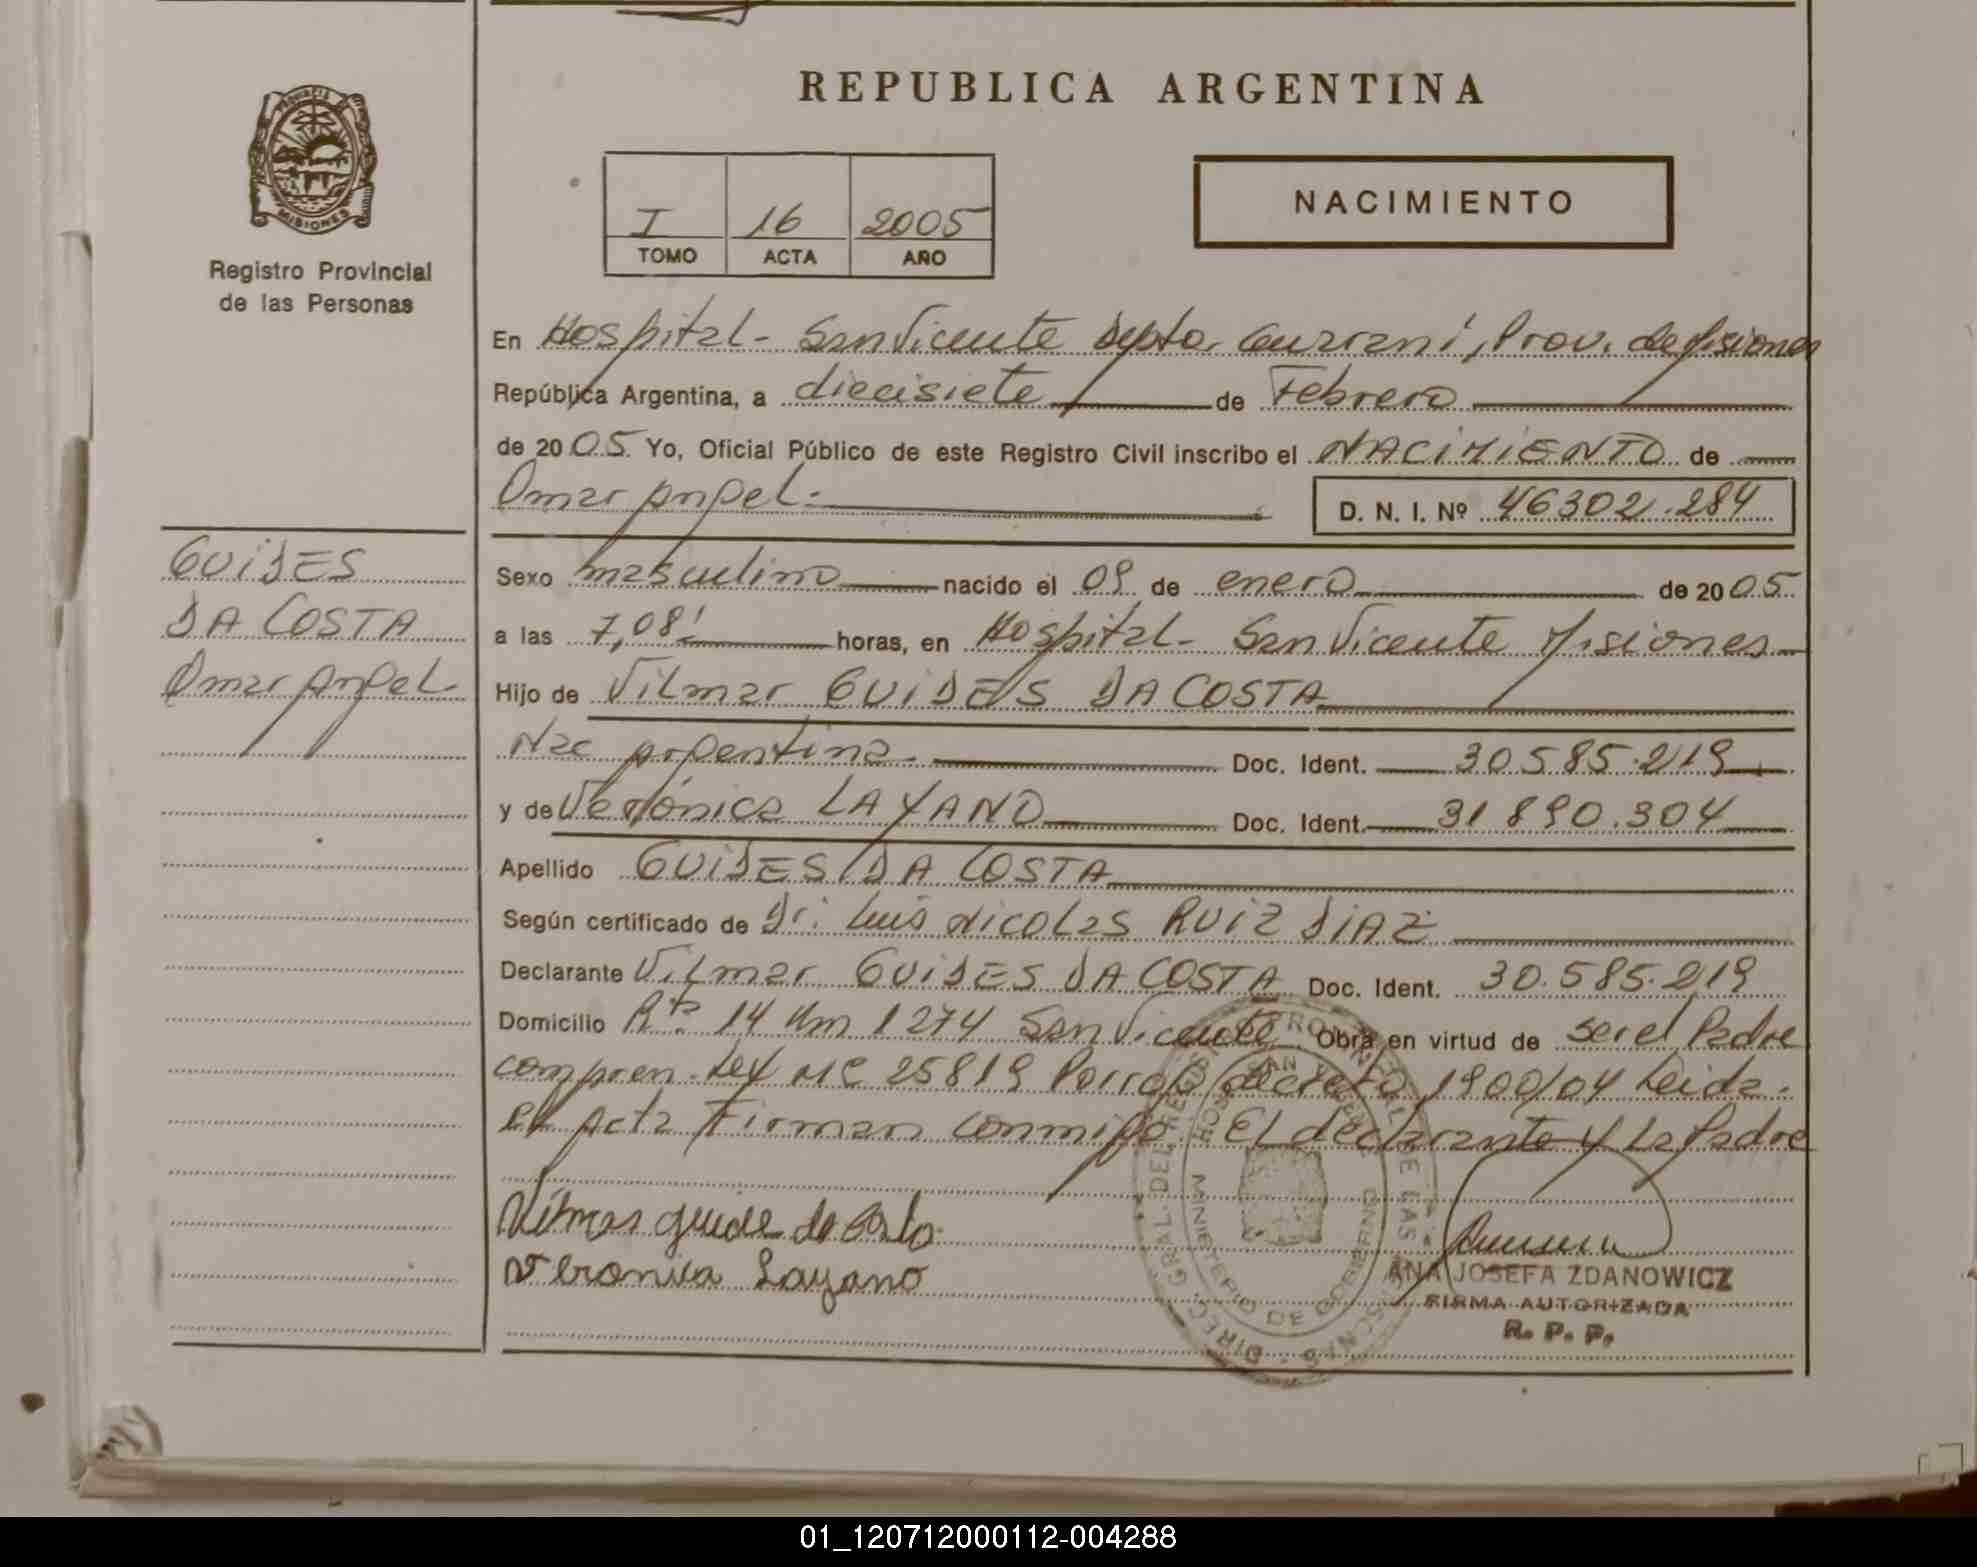 REPUBLICA ARGENTINA
PROVINCIA
MISIONES
Registro Provincial
de las Personas
I 16 2005
TOMO ACTA AÑO
NACIMIENTO
GUIDES
DA COSTA
Omar Angel.
En Hospital - San Vicente Depto. Guarani, Prov. de Misiones
República Argentina, a diecisiete de Febrero
de 2005 Yo, Oficial Público de este Registro Civil inscribo el NACIMIENTO de
Omar Angel.
D. N. I. Nº 46302.284
Sexo masculino nacido el 09 de enero de 2005
a las 7,08' horas, en Hospital - San Vicente Misiones
Hijo de Vilmar GUIDES DA COSTA
Nac Argentina. Doc. Ident. 30.585.219
y de Verónica LAYANO Doc. Ident. 31.890.304
Apellido GUIDES DA COSTA
Según certificado de Dr. Luis Nicolas RUIZ DIAZ
Declarante Vilmar GUIDES DA COSTA Doc. Ident. 30.585.219
Domicilio Rta. 14 Km 1274 San Vicente Obra en virtud de ser el Padre
compren. Ley Nº 25819 Porrog decreto 1900/04 Leida.
El Acta Firman conmigo. El declarante y La Padre
Vilmar guide da Costa
Veronica Layano
DIREC. GRAL. DEL REGISTRO PROVINCIAL DE LAS PERSONAS
HOSPITAL SAN VICENTE
MINISTERIO DE GOBIERNO
ANA JOSEFA ZDANOWICZ
FIRMA AUTORIZADA
R. P. P.
01_120712000112-004288